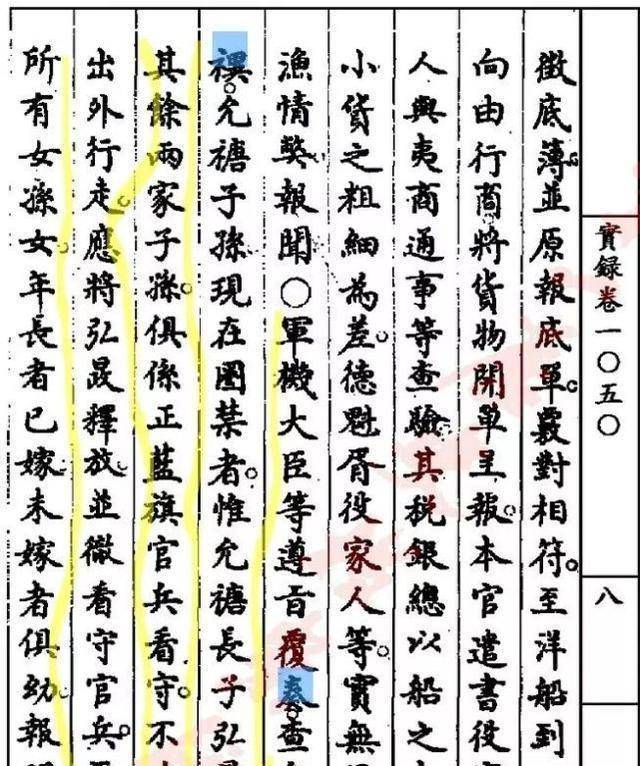 實錄卷一〇五〇
八
徵底簿。並原報底單。覈對相符。至洋船到
向由行商將貨物開單呈報。本官遣書役
人與夷商通事等查驗其税銀總以船之
小貨之粗細為差。德魁胥役家人等。實無
漁情獘。報聞〇軍機大臣等遵旨覆奏。查
禩。允禟子孫現在圈禁者。惟允禟長子弘
其餘兩家子孫。俱係正藍旗官兵看守。不
出外行走。應將弘晸釋放。並徹看守官兵。
所有女孫女。年長者已嫁。未嫁者俱幼。報